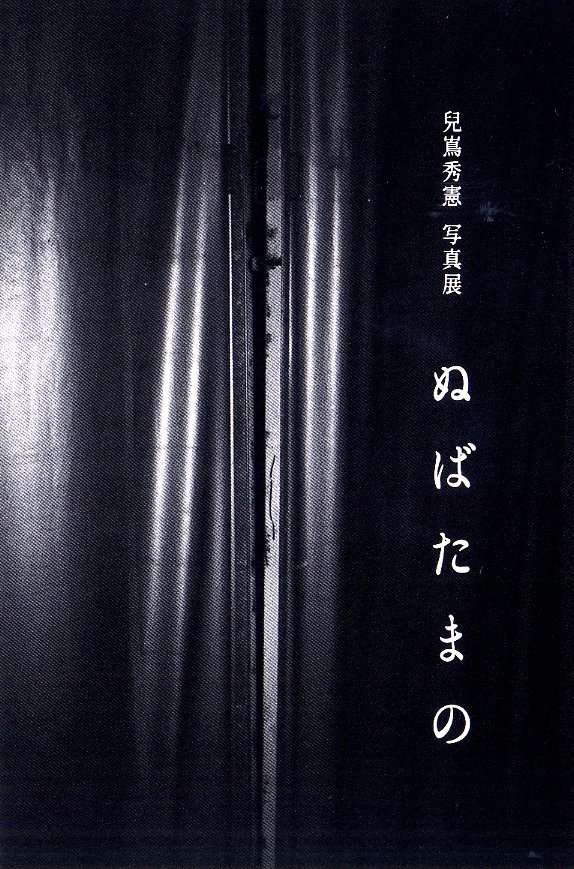 兒嶌秀憲 写真展
ぬばたまの